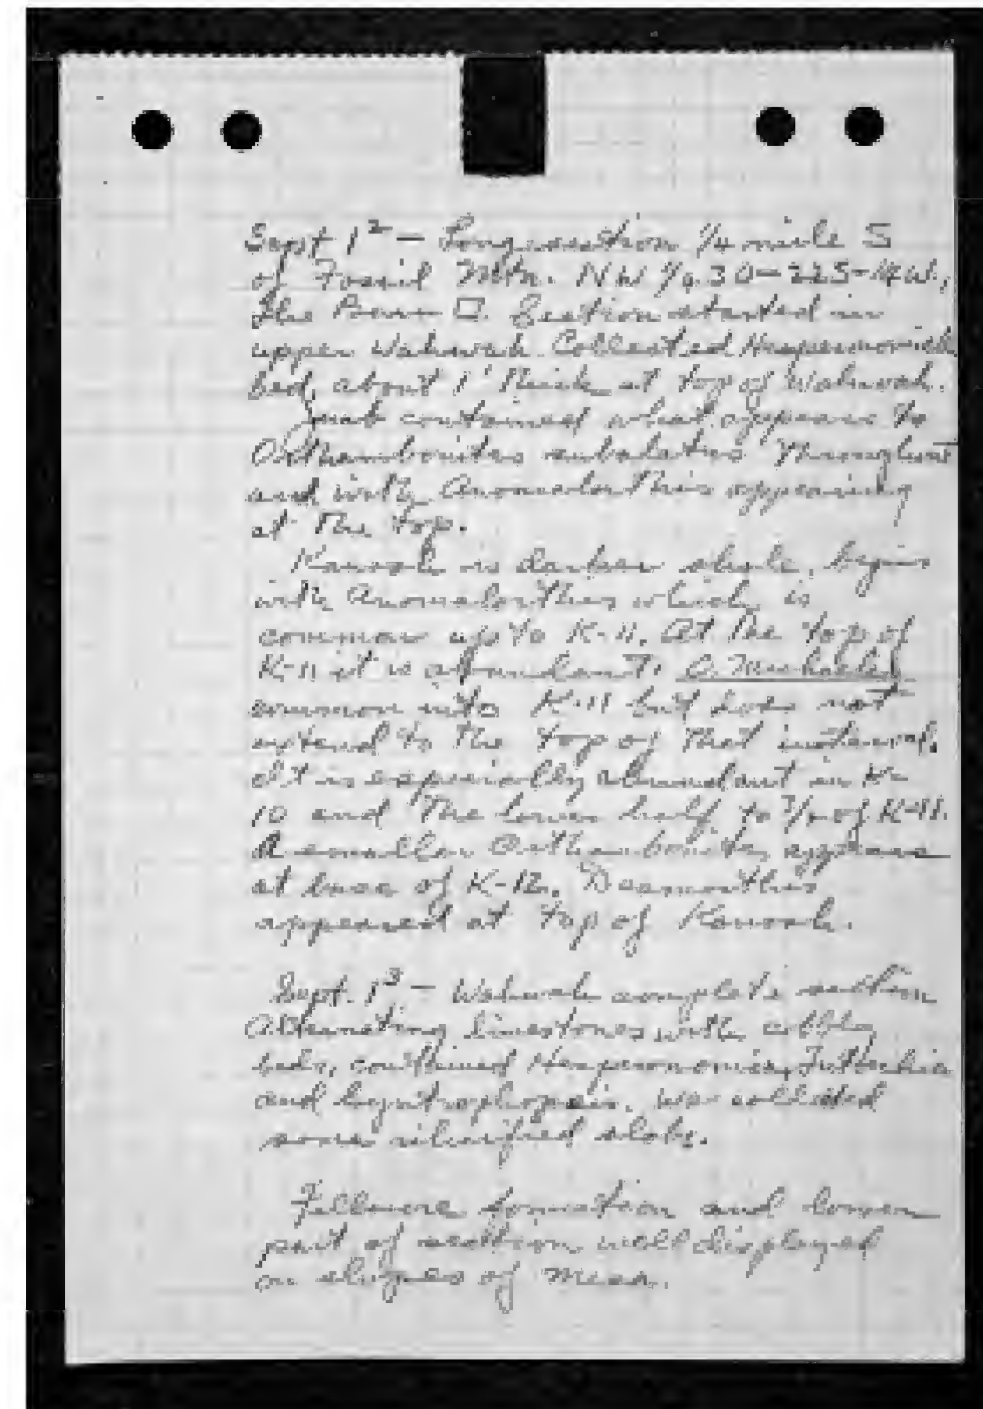 Sept 1² — Long section ¼ mile S
of Fossil Mtn. NW ¼ 30-22S-14W.,
The Section started in
upper Wahwah. Collected Hesperonomiella
bed, about 1' thick at top of Wahwah.
Juab contained what appears to
Orthambonites subalatus throughout
and with Anomalorthis appearing
at the top.
Kanosh is darker shale, begins
with Anomalorthis which is
common up to K-11. At the top of
K-11 it is abundant. O. michaelis
common into K-11 but does not
extend to the top of that interval.
It is especially abundant in K-
10 and the lower half to ¾ of K-11.
A smaller Orthambonites appears
at base of K-12. Desmorthis
appeared at top of Kanosh.
Sept. 1³ — Wahwah complete section
Alternating limestones with cobbly
beds, contained Hesperonomia, Tritoechia
and Syntrophopsis. We collected
some silicified slabs.
Fillmore formation and lower
part of section well displayed
on slopes of mesa.